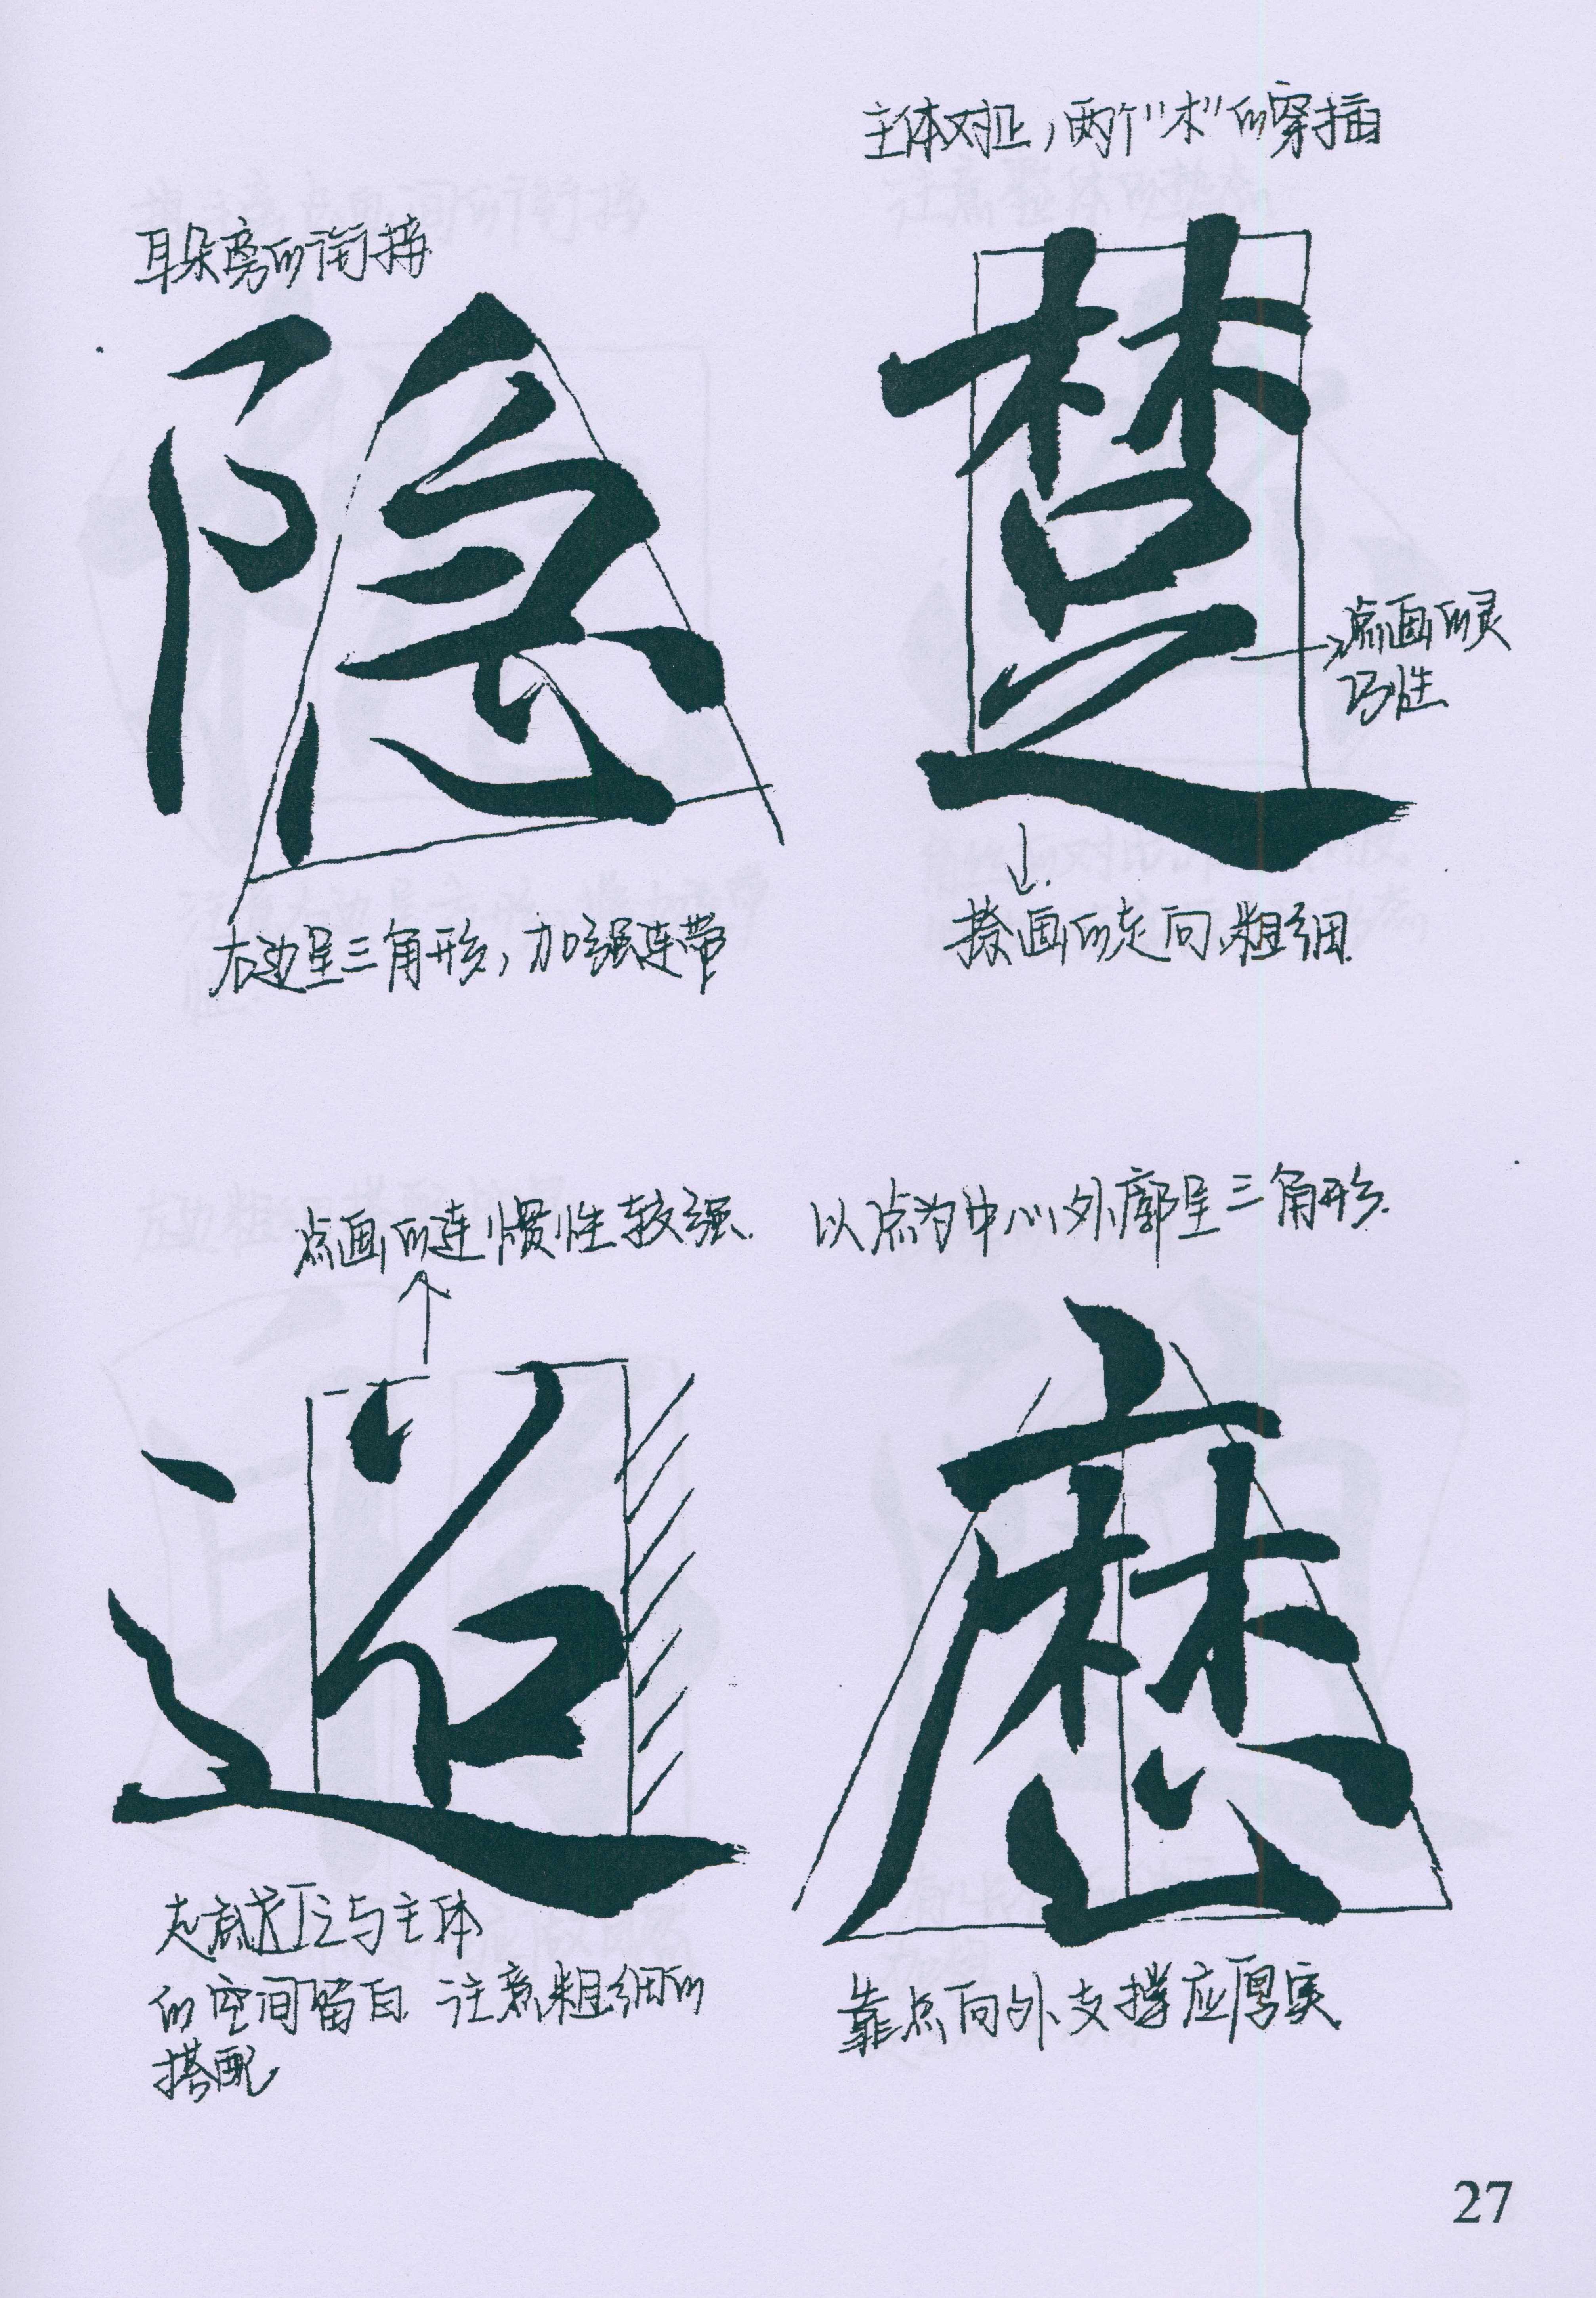 耳朵旁的衔接
隐
右边呈三角形，加强连带
主体对正，两个“木”的穿插
楚
点画的灵
巧性
捺画的走向、粗细.
点画的连惯性较强.
迢
走底
与主体
的空间留白 注意粗细的
搭配
以点为中心，外廓呈三角形.
靠点向外支撑应厚实
27